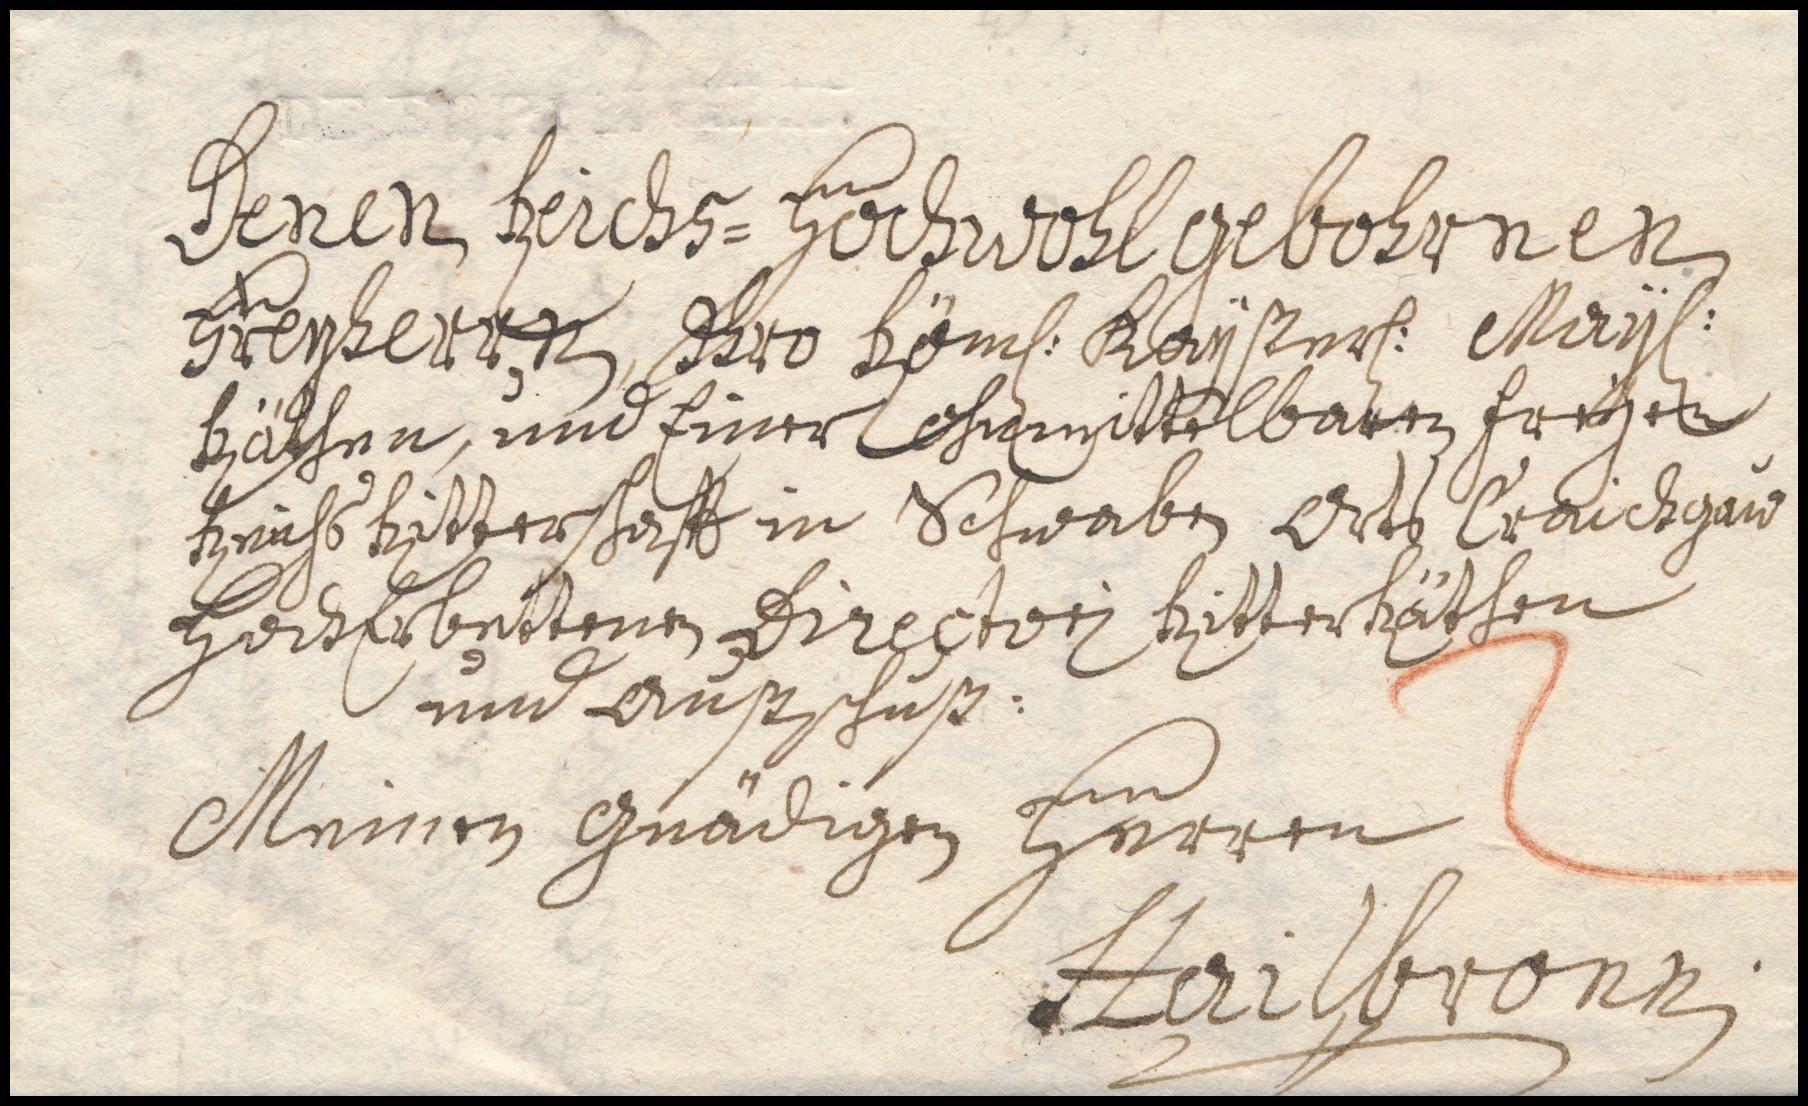 Denen Reichs=Hochwohlgebohrnen
Freyherrn, Ihro Röml: Kayßerl: Mayl:
Räthen, und Einer Ohnmittelbaren freyen
Reichs Ritterschafft in Schwaben Orts Craichgau
HochErbettenen Directori Ritter Räthen
und Außschuß:
Meinen Gnädigen Herren
Hailbronn.